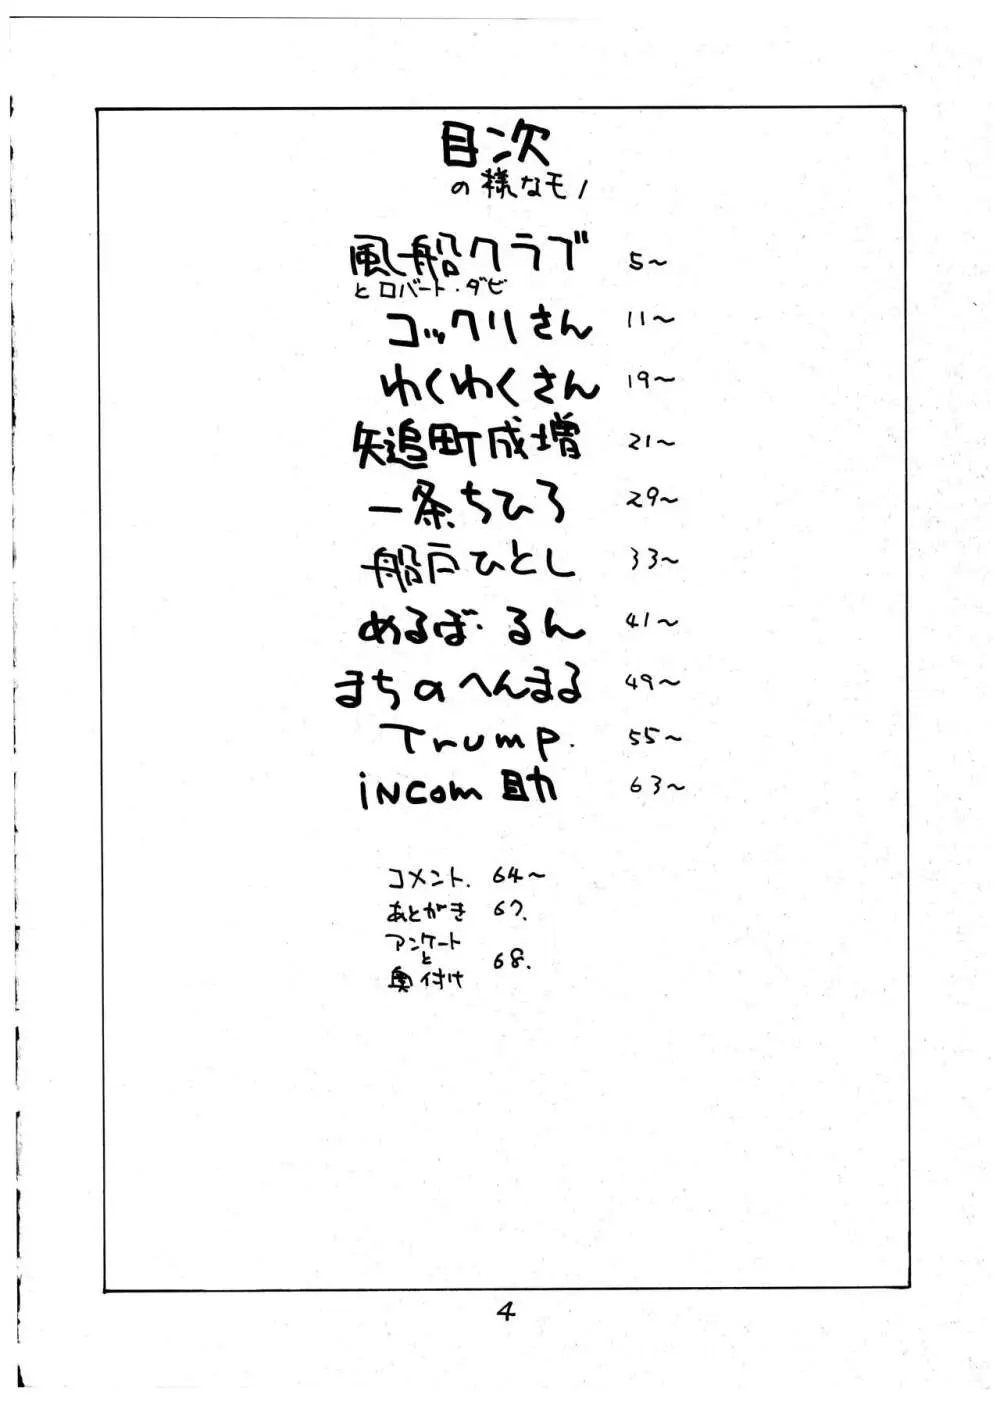 目次
の様なモノ
風船クラブ 5〜
とロバート・ダビ
コックリさん 11〜
わくわくさん 19〜
矢追町成増 21〜
一条ちひろ 29〜
船戸ひとし 33〜
めるば・るん 41〜
まちのへんまる 49〜
Trump. 55〜
iNCom助 63〜
コメント. 64〜
あとがき 67.
アンケート
と 68.
奥付け
4